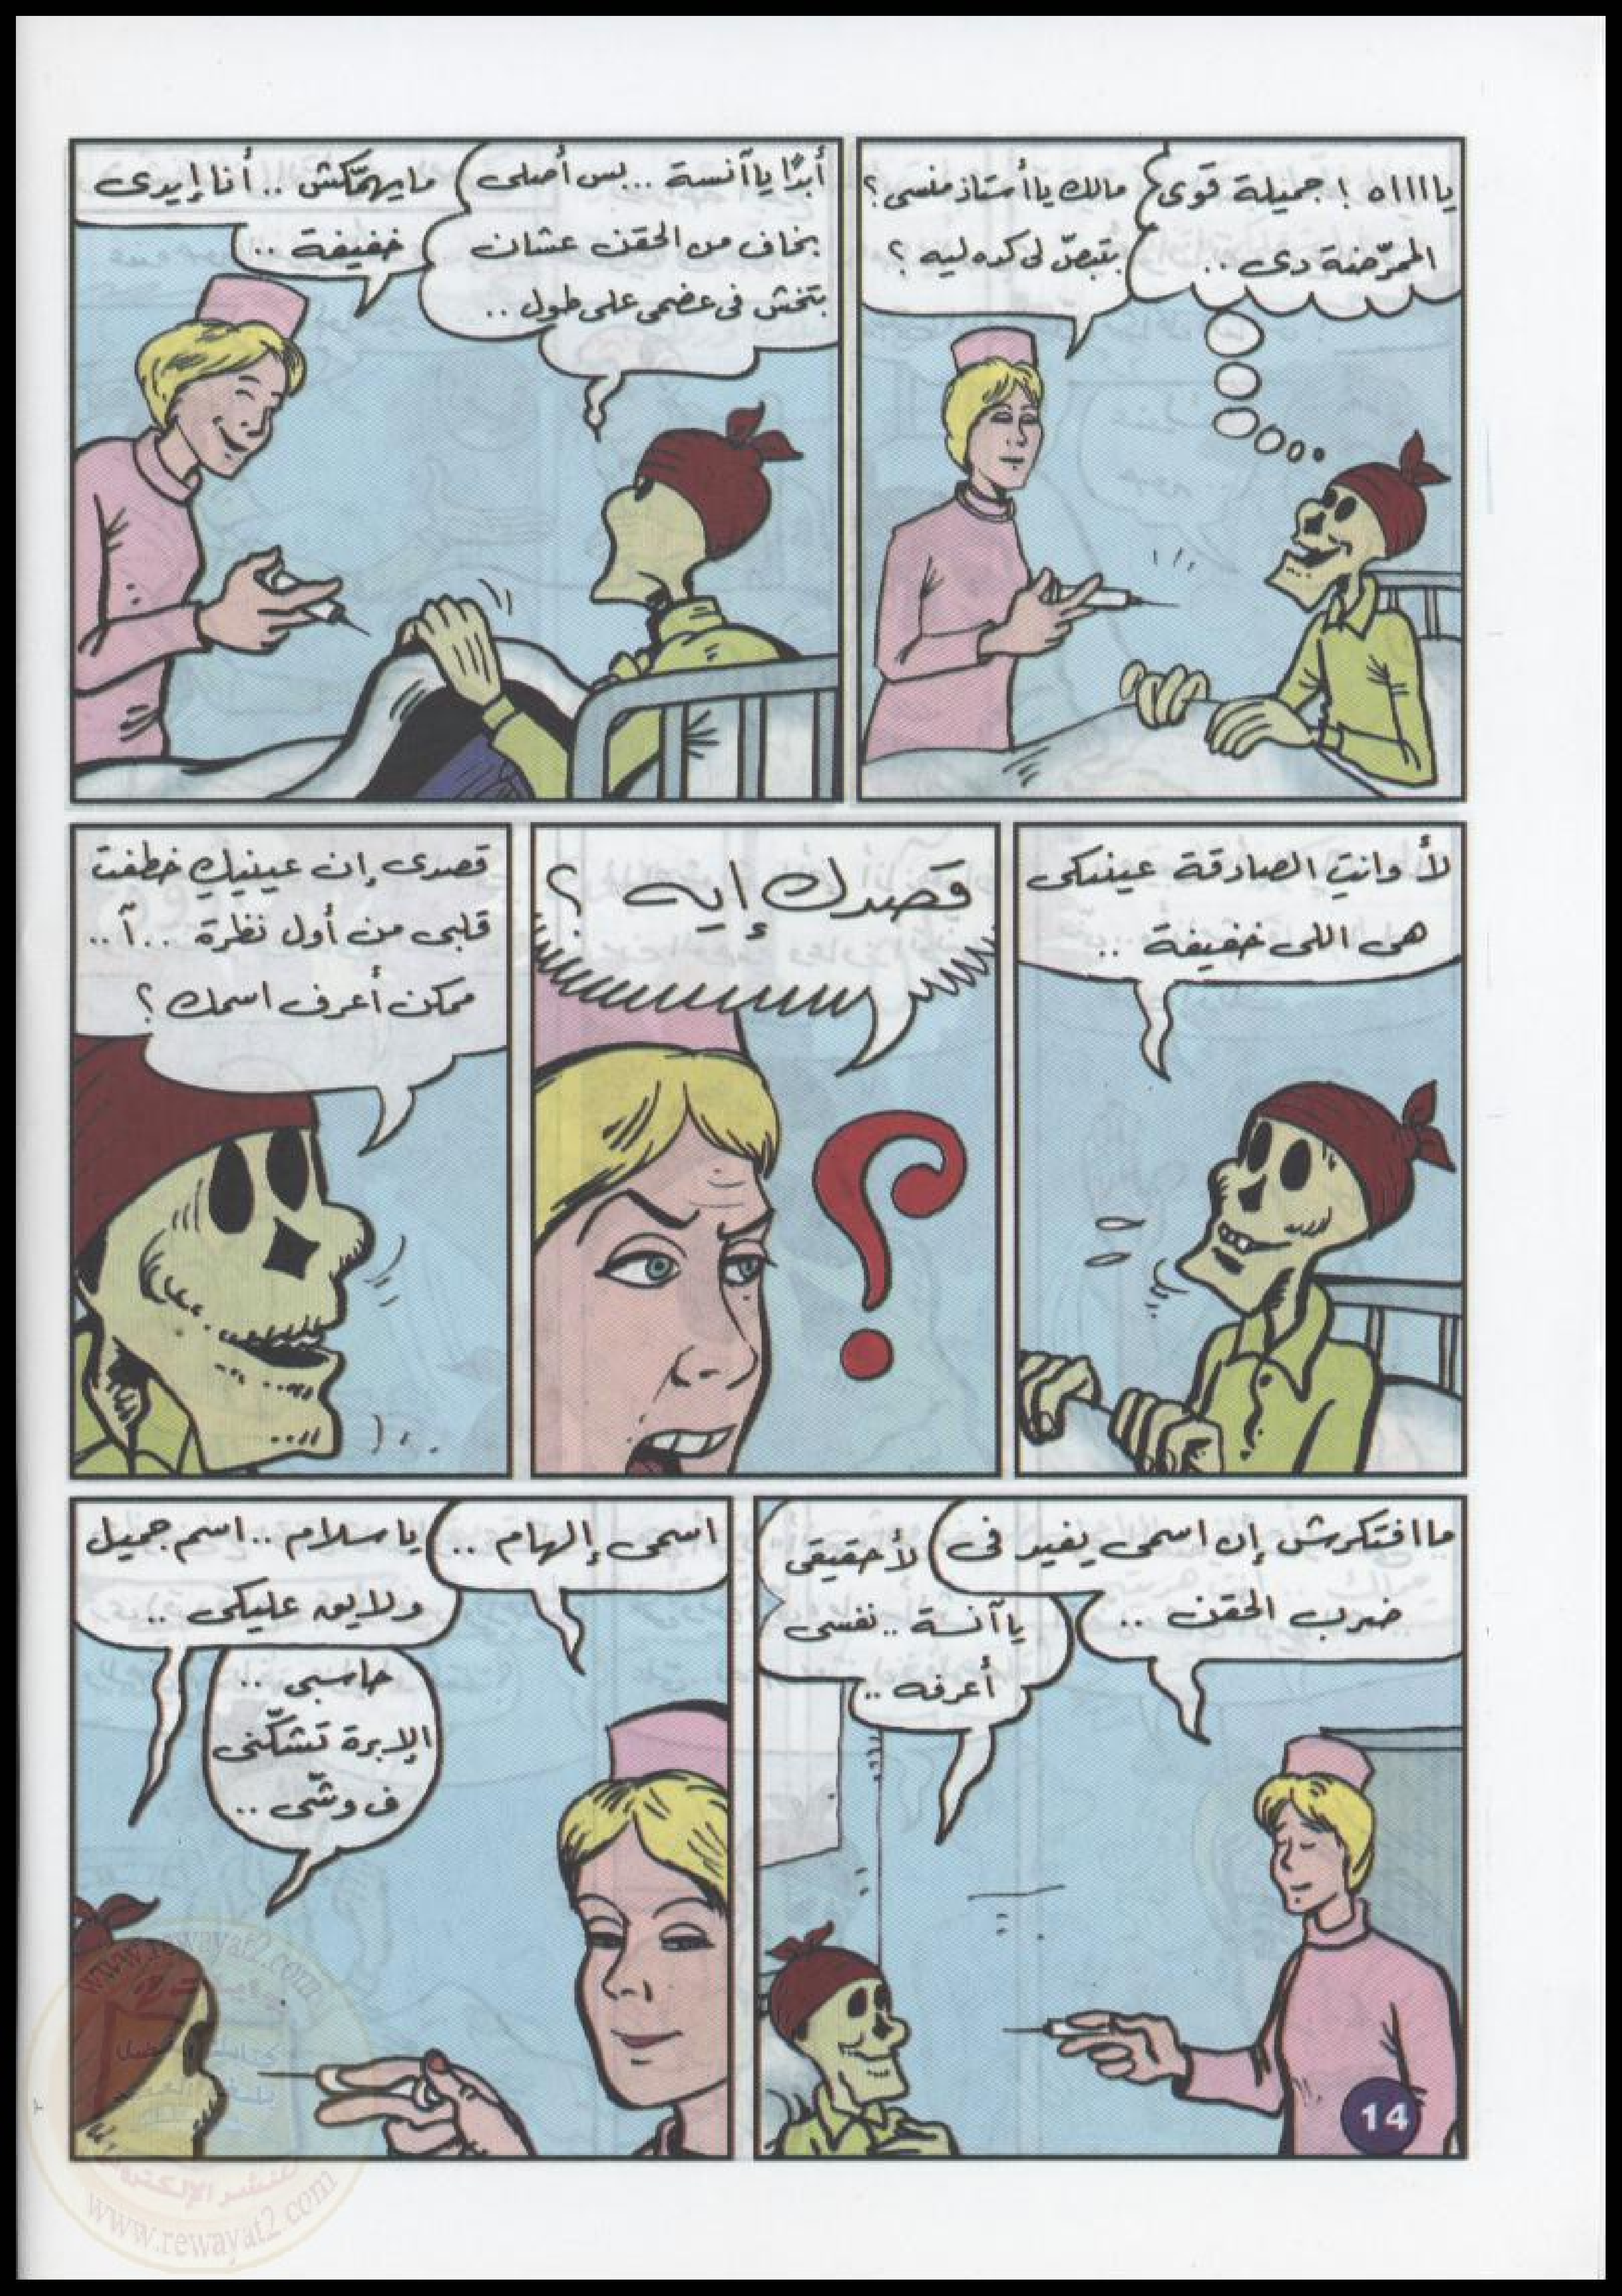 ياااااه ! جميلة قوى
الممرّضة دى ..
مالك يا أستاذ منسى ؟
بتبصّ لى كده ليه ؟
أبدًا يا آنسة ... بس أصلى
بخاف من الحقن عشان
بتخش فى عضمى على طول ..
مايهمّكش .. أنا إيدى
خفيفة ..
لأ وانتِ الصادقة عينيكى
هى اللى خفيفة ..
قصدك إيه ؟
قصدى إن عينيكِ خطفت
قلبى من أول نظرة .. آ ..
ممكن أعرف اسمك ؟
ما افتكرش إن اسمى يفيد فى
ضرب الحقن ..
لأ حقيقى
يا آنسة .. نفسى
أعرفه ..
اسمى إلهام ..
يا سلام .. اسم جميل
ولايق عليكى ..
حاسبى ..
الإبرة تشكّنى
ف وشّى ..
14
www.rewayat2.com
www.rewayat2.com